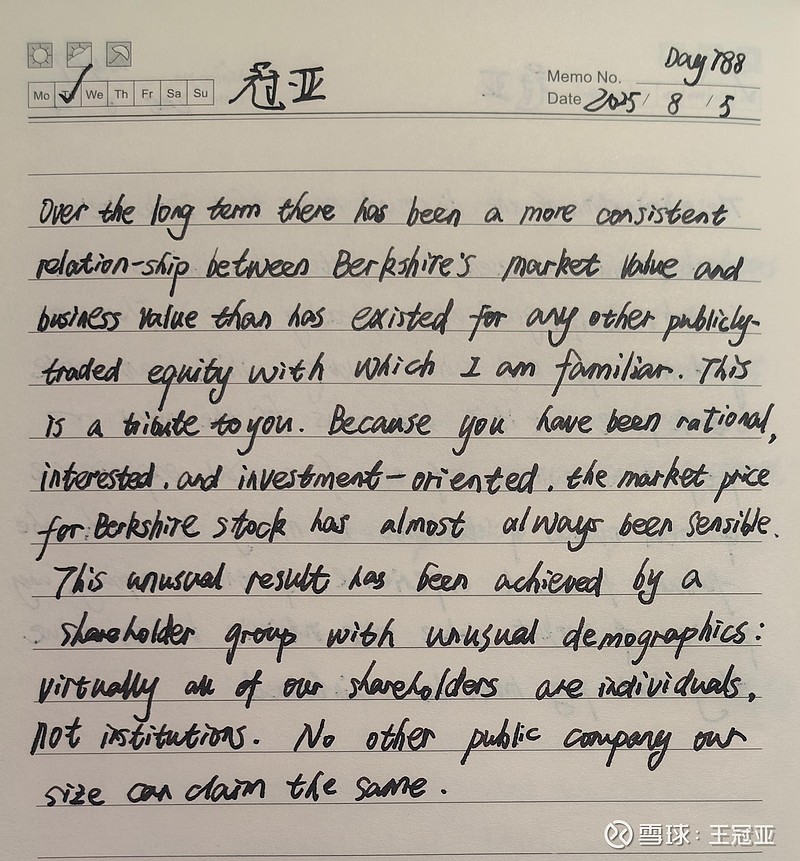 Day 788
冠亚
Memo No.
Mo Tu We Th Fr Sa Su
Date 2025 / 8 / 5
Over the long term there has been a more consistent
relation-ship between Berkshire's market value and
business value than has existed for any other publicly-
traded equity with which I am familiar. This
is a tribute to you. Because you have been rational,
interested, and investment-oriented, the market price
for Berkshire stock has almost always been sensible.
This unusual result has been achieved by a
shareholder group with unusual demographics:
virtually all of our shareholders are individuals,
not institutions. No other public company our
size can claim the same.
雪球：王冠亚